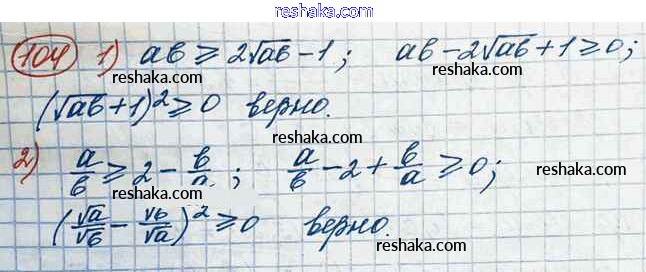 www.reshaka.com
104 1) ab ≥ 2√ab - 1; ab - 2√ab + 1 ≥ 0;
reshaka.com reshaka.com
(√ab + 1)² ≥ 0 верно.
reshaka.com
2) a/b ≥ 2 - b/a; a/b - 2 + b/a ≥ 0;
reshaka.com reshaka.com
(√a/√b - √b/√a)² ≥ 0 верно.
reshaka.com reshaka.com